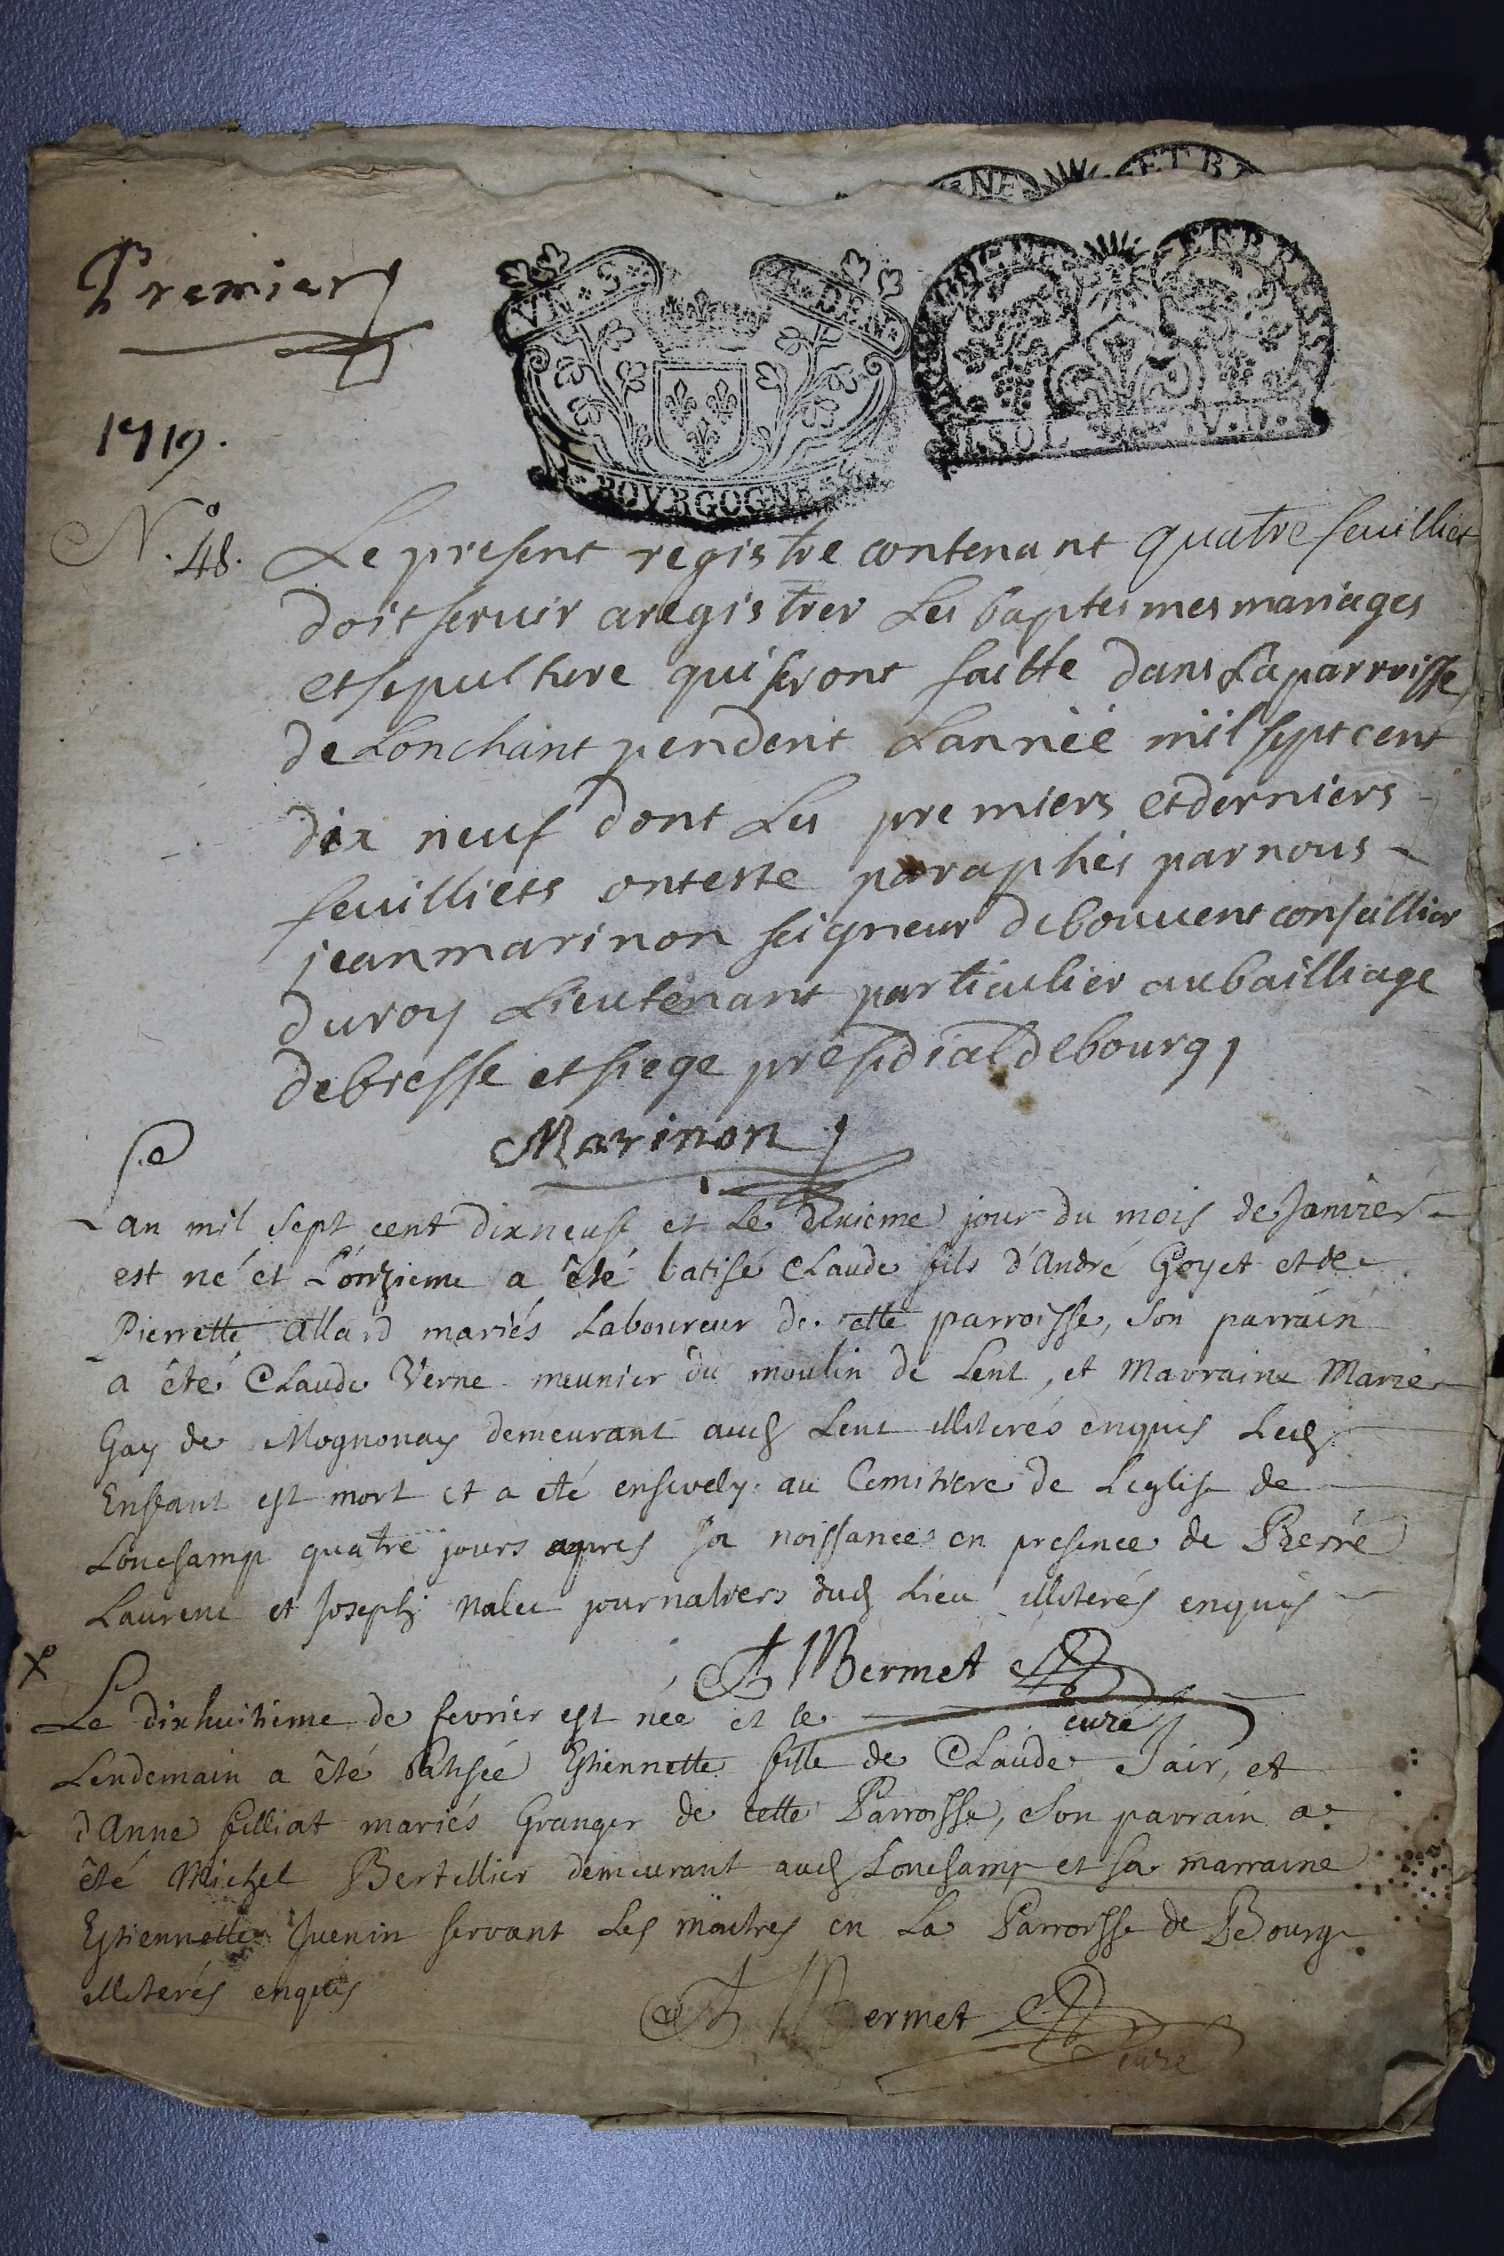 Premier
1719.
N.° 48.
VN S
X DEN
BOVRGOGNE
I. SOL IV. D.
Le present registre contenant quatre feuilliet
doit servir aregistrer Les baptesmes mariages
et sepulture qui seront faitte dans La parroisse
de Lonchant pendent Lanneé mil sept cent
dix neuf dont Les premiers et derniers
feuilliets onteste paraphés par nous
jean marinon seigneur de bouvent conseillier
du roy Lieutenant particulier au bailliage
de bresse et siege presidial de bourg
Marinon
an mil sept cent dixneuf et le dixieme jour du mois de Janvier
est né et L'onzieme a été batisé Claude fils d'André Goyet et de
Pierrette Allard mariés Laboureur de cette parroisse, son parrain
a été Claude Verne meunier du moulin de Lent, et marraine Marie
Gay de Mognonay demeurant aud Lent illiterés enquis Led
Enfant est mort et a été ensevely au Cemitiere de Leglise de
Lonchamp quatre jours apres sa noissance en presence de Pierre
Laurent et Joseph Nalet journaliers dud Lieu illiterés enquis
Bermet
curé
Le dixhuitieme de fevrier est née et le
Lendemain a été Batisée Estiennette fille de Claude Jair, et
d'Anne filliat mariés Granger de cette Parroisse, son parrain a
été Michel Bertillier demeurant aud Lonchamp et sa marraine
Estiennette Juenin servant Les maitres en La Parroisse de Bourg
illiterés enquis
Bermet
curé